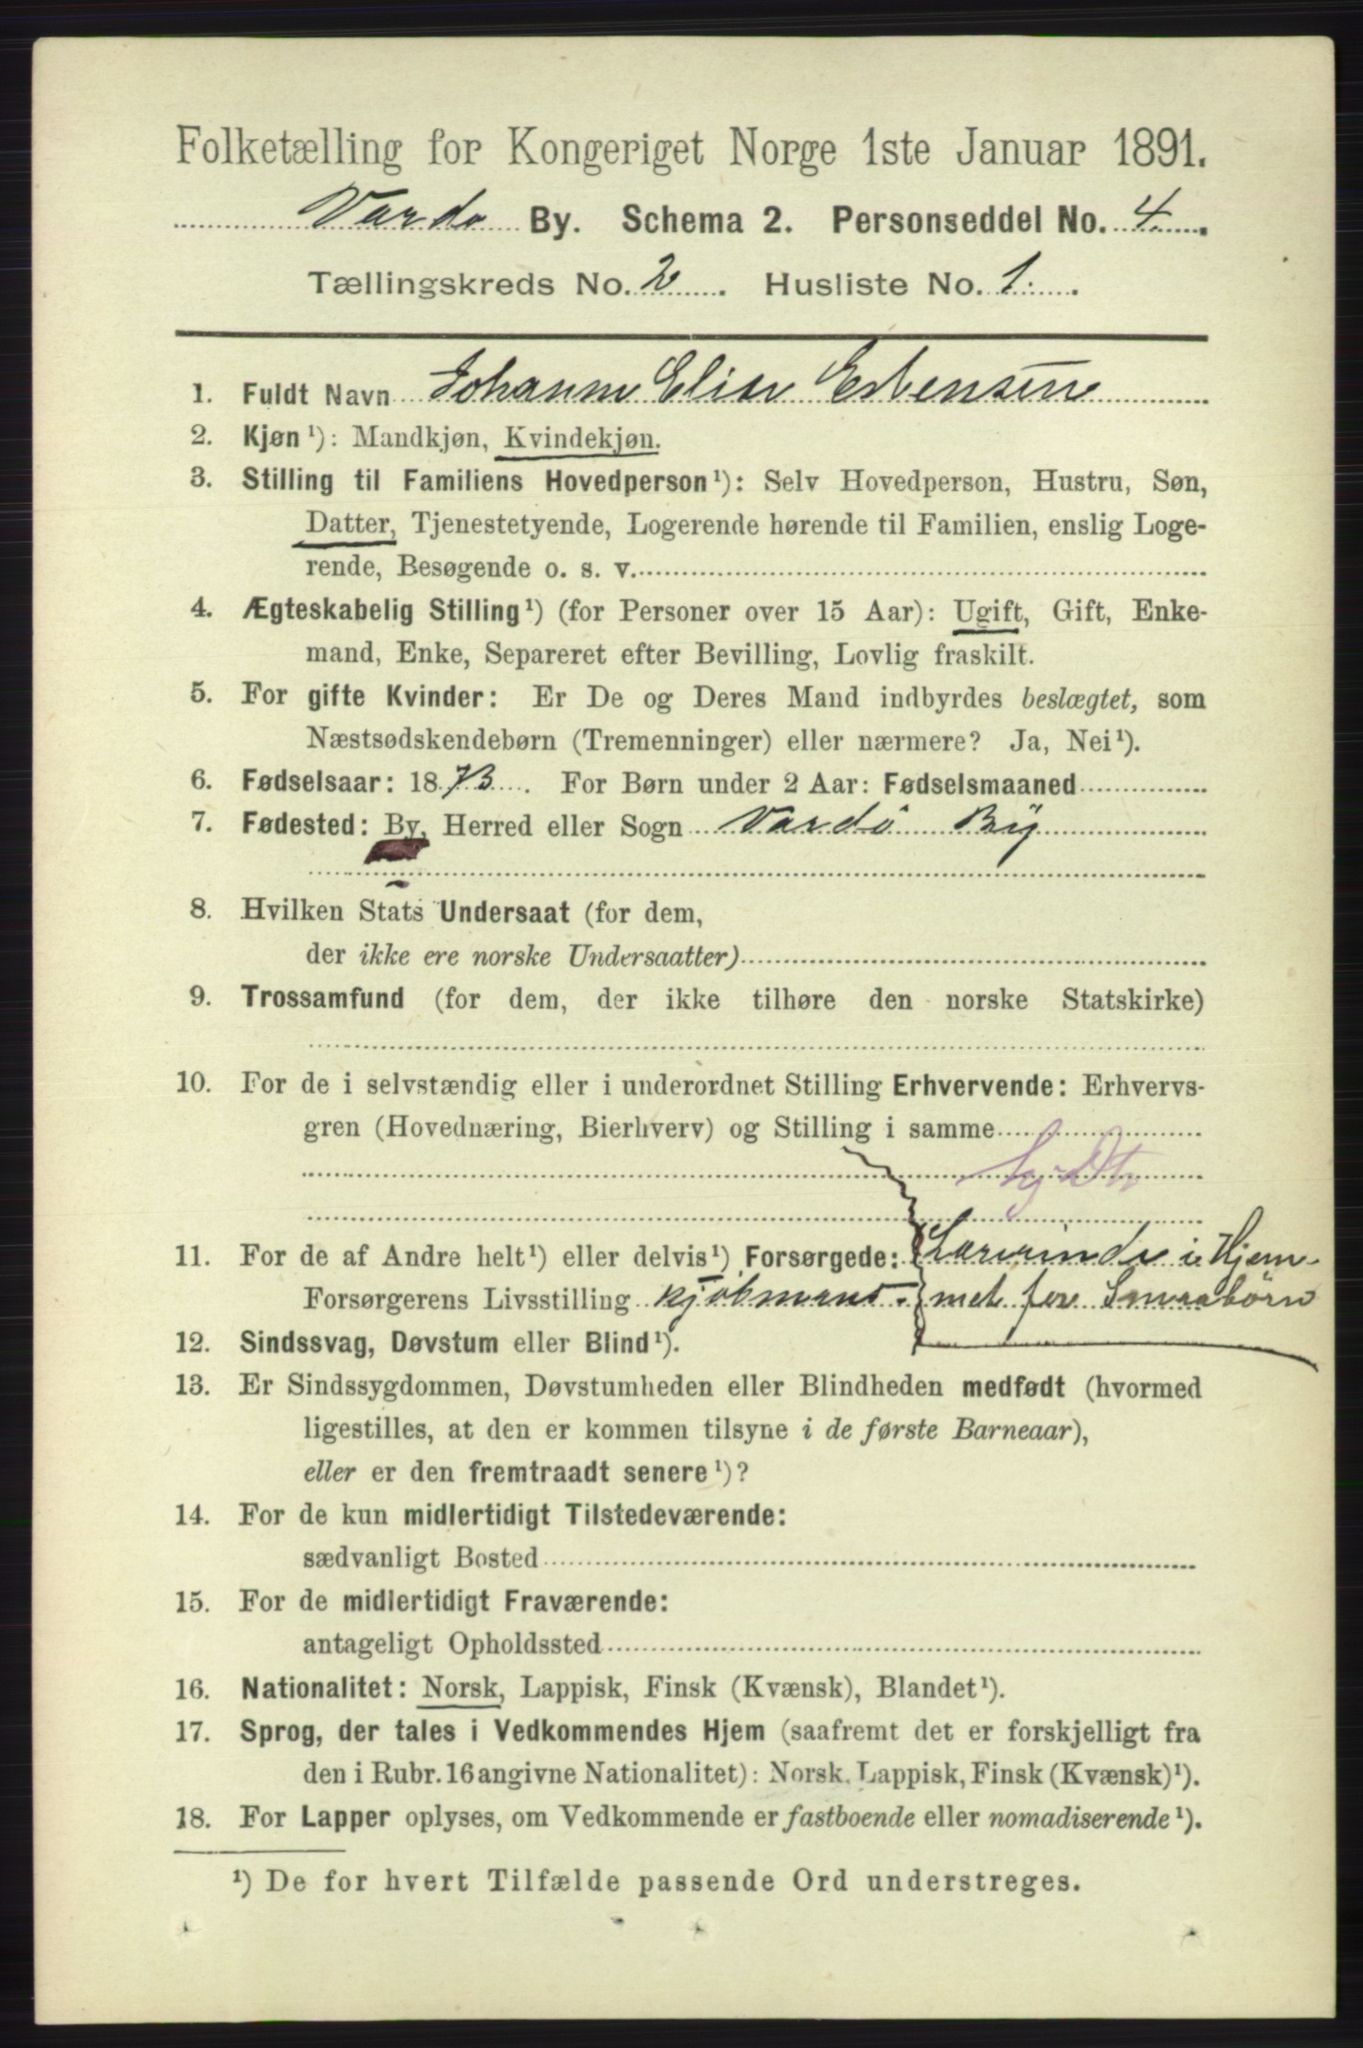 Folketælling for Kongeriget Norge 1ste Januar 1891.
Vardø By. Schema 2. Personseddel No. 4.
Tællingskreds No. 2. Husliste No. 1.
1. Fuldt Navn Johanne Elise Esbensen
2. Kjøn¹): Mandkjøn, Kvindekjøn.
3. Stilling til Familiens Hovedperson¹): Selv Hovedperson, Hustru, Søn,
Datter, Tjenestetyende, Logerende hørende til Familien, enslig Loge-
rende, Besøgende o. s. v.
4. Ægteskabelig Stilling¹) (for Personer over 15 Aar): Ugift, Gift, Enke-
mand, Enke, Separeret efter Bevilling, Lovlig fraskilt.
5. For gifte Kvinder: Er De og Deres Mand indbyrdes beslægtet, som
Næstsødskendebørn (Tremenninger) eller nærmere? Ja, Nei¹).
6. Fødselsaar: 1873. For Børn under 2 Aar: Fødselsmaaned
7. Fødested: By, Herred eller Sogn Vardö By
8. Hvilken Stats Undersaat (for dem,
der ikke ere norske Undersaatter)
9. Trossamfund (for dem, der ikke tilhøre den norske Statskirke)
10. For de i selvstændig eller i underordnet Stilling Erhvervende: Erhvervs-
gren (Hovednæring, Bierhverv) og Stilling i samme
11. For de af Andre helt¹) eller delvis¹) Forsørgede: Lærerinde i Hjem-
Forsørgerens Livsstilling Kjøbmand. met for Smaabörn
12. Sindssvag, Døvstum eller Blind¹).
13. Er Sindssygdommen, Døvstumheden eller Blindheden medfødt (hvormed
ligestilles, at den er kommen tilsyne i de første Barneaar),
eller er den fremtraadt senere¹)?
14. For de kun midlertidigt Tilstedeværende:
sædvanligt Bosted
15. For de midlertidigt Fraværende:
antageligt Opholdssted
16. Nationalitet: Norsk, Lappisk, Finsk (Kvænsk), Blandet¹).
17. Sprog, der tales i Vedkommendes Hjem (saafremt det er forskjelligt fra
den i Rubr. 16 angivne Nationalitet): Norsk, Lappisk, Finsk (Kvænsk)¹).
18. For Lapper oplyses, om Vedkommende er fastboende eller nomadiserende¹).
¹) De for hvert Tilfælde passende Ord understreges.